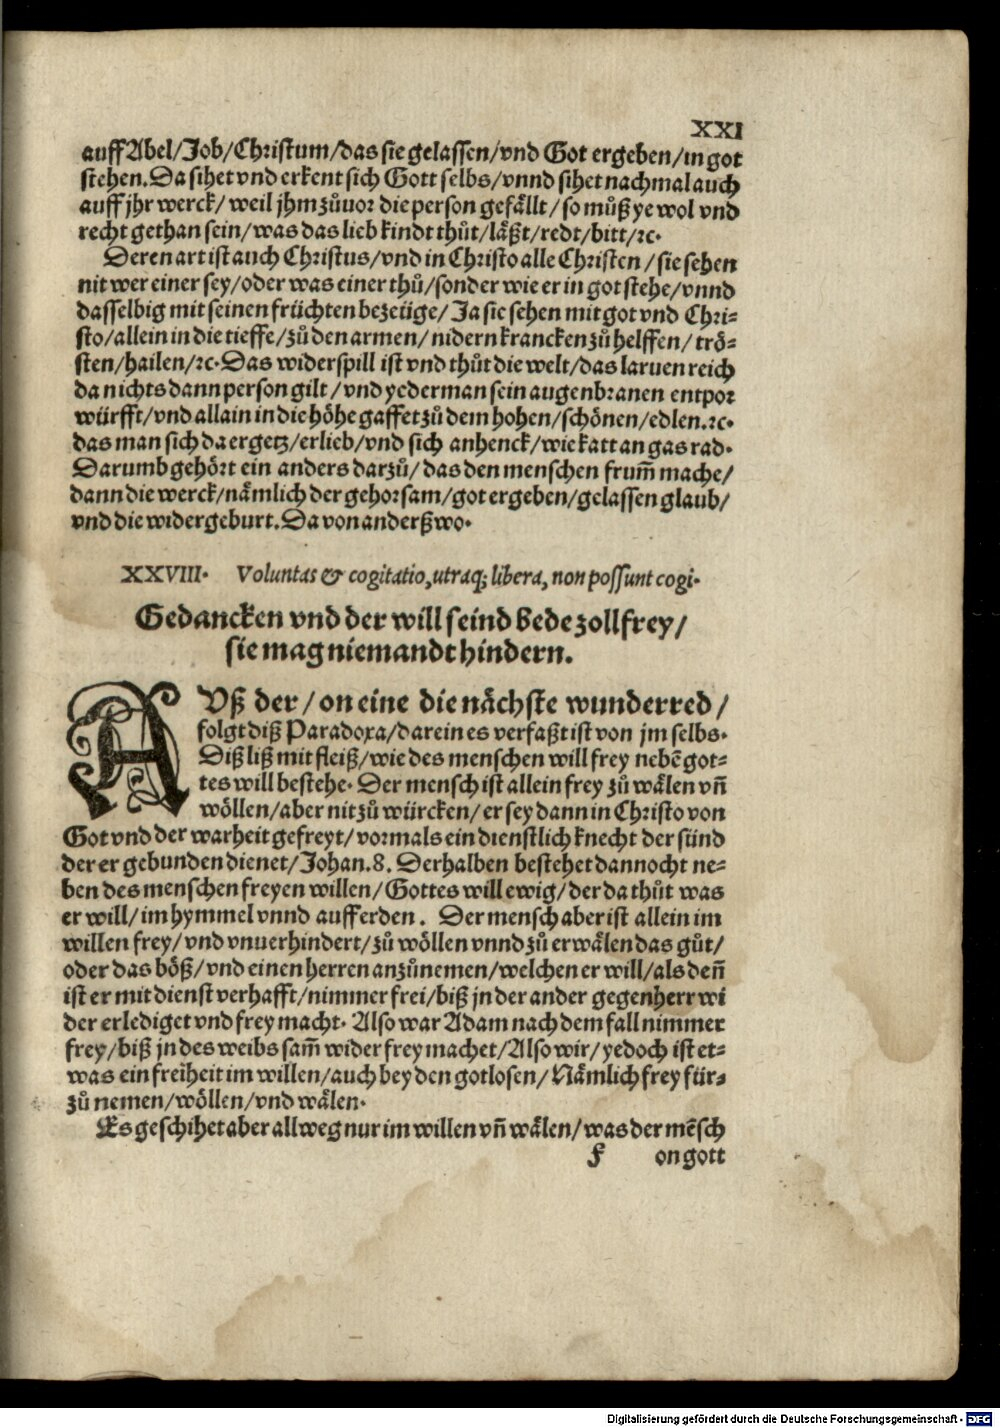 XXI
auff Abel/Job/Christum/das sie gelassen/vnd Got ergeben/in got
stehen. Da sihet vnd erkent sich Gott selbs/vnnd sihet nachmal auch
auff jhr werck/ weil jhm zůuor die person gefällt/ so můß ye wol vnd
recht gethan sein/was das lieb kindt thůt/läßt/redt/bitt/ꝛc.
Deren art ist auch Christus/vnd in Christo alle Christen/ sie sehen
nit wer einer sey/oder was einer thů/sonder wie er in got stehe/vnnd
dasselbig mit seinen früchten bezeüge/ Ja sie sehen mit got vnd Chri⸗
sto/allein in die tieffe/zů den armen/ nidern krancken zů helffen/ trö⸗
sten/hailen/ꝛc. Das widerspill ist vnd thůt die welt/das laruen reich
da nichts dann person gilt/ vnd yederman sein augenbranen entpor
würfft/vnd allain in die höhe gaffet zů dem hohen/schönen/edlen.ꝛc.
das man sich da ergetz/erlieb/vnd sich anhenck/wie katt an gas rad.
Darumb gehört ein anders darzů/ das den menschen frum̃ mache/
dann die werck/nämlich der gehorsam/got ergeben/gelassen glaub/
vnd die widergeburt. Da von anderßwo.
XXVIII. Voluntas & cogitatio, utraq; libera, non possunt cogi.
Gedancken vnd der will seind bede zollfrey/
sie mag niemandt hindern.
AVß der/ on eine die nächste wunderred/
folgt diß Paradoxa/darein es verfaßt ist von jm selbs.
Diß liß mit fleiß/wie des menschen will frey nebẽ got⸗
tes will bestehe. Der mensch ist allein frey zů wälen vñ
wöllen/aber nit zů würcken/ er sey dann in Christo von
Got vnd der warheit gefreyt/ vormals ein dienstlich knecht der sünd
der er gebunden dienet/Johan.8. Derhalben bestehet dannocht ne⸗
ben des menschen freyen willen/Gottes will ewig/der da thůt was
er will/im hymmel vnnd auff erden. Der mensch aber ist allein im
willen frey/vnd vnuerhindert/zů wöllen vnnd zů erwälen das gůt/
oder das böß/vnd einen herren anzůnemen/welchen er will/als deñ
ist er mit dienst verhafft/nimmer frei/biß jn der ander gegenherr wi
der erlediget vnd frey macht. Also war Adam nach dem fall nimmer
frey/biß jn des weibs sam̃ wider frey machet/Also wir/yedoch ist et⸗
was ein freiheit im willen/auch bey den gotlosen/Nämlich frey für⸗
zů nemen/wöllen/vnd wälen.
Es geschihet aber allweg nur im willen vñ wälen/was der mẽsch
F on gott
Digitalisierung gefördert durch die Deutsche Forschungsgemeinschaft - DFG